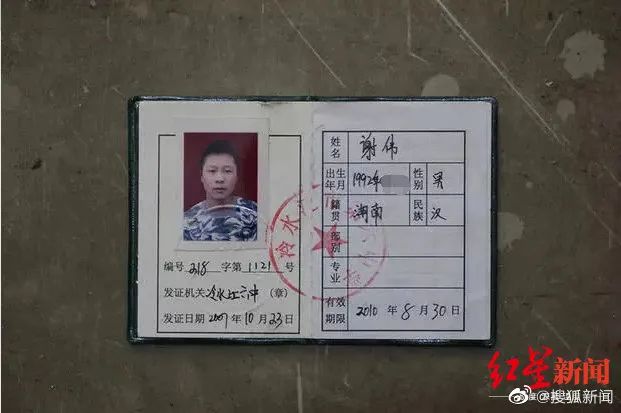 编号 218 字第 1121 号
发证机关 冷水江六中 (章)
发证日期 2007 年 10 月 23 日
姓名 谢伟
出生年月 1992年 性别 男
籍贯 湖南 民族 汉
部别
专业
有效期限 2010 年 8 月 30 日
冷水
红星新闻
@搜狐新闻